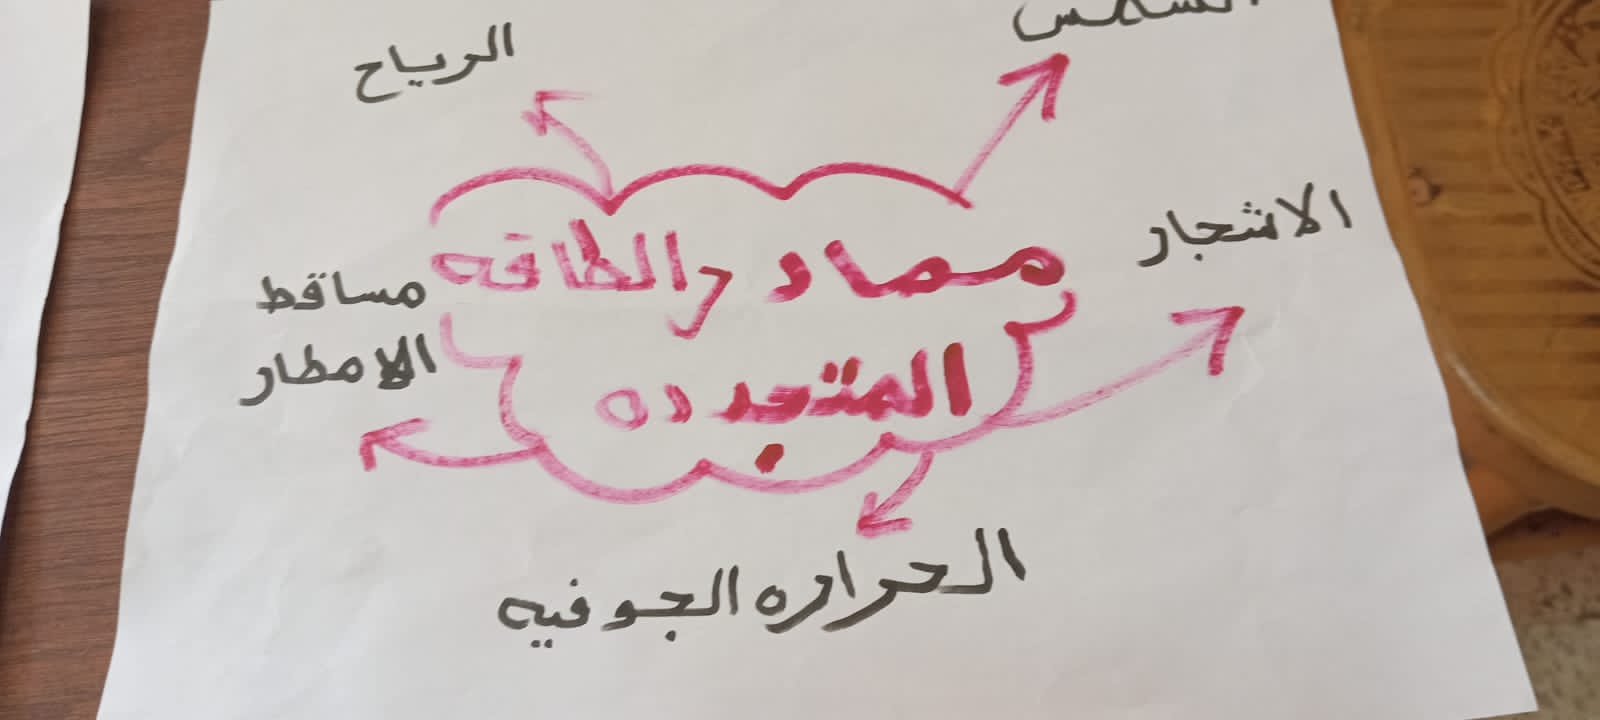 الشمس
الرياح
الاشجار
مصادر الطاقه
المتجدده
مساقط
الامطار
الحراره الجوفيه